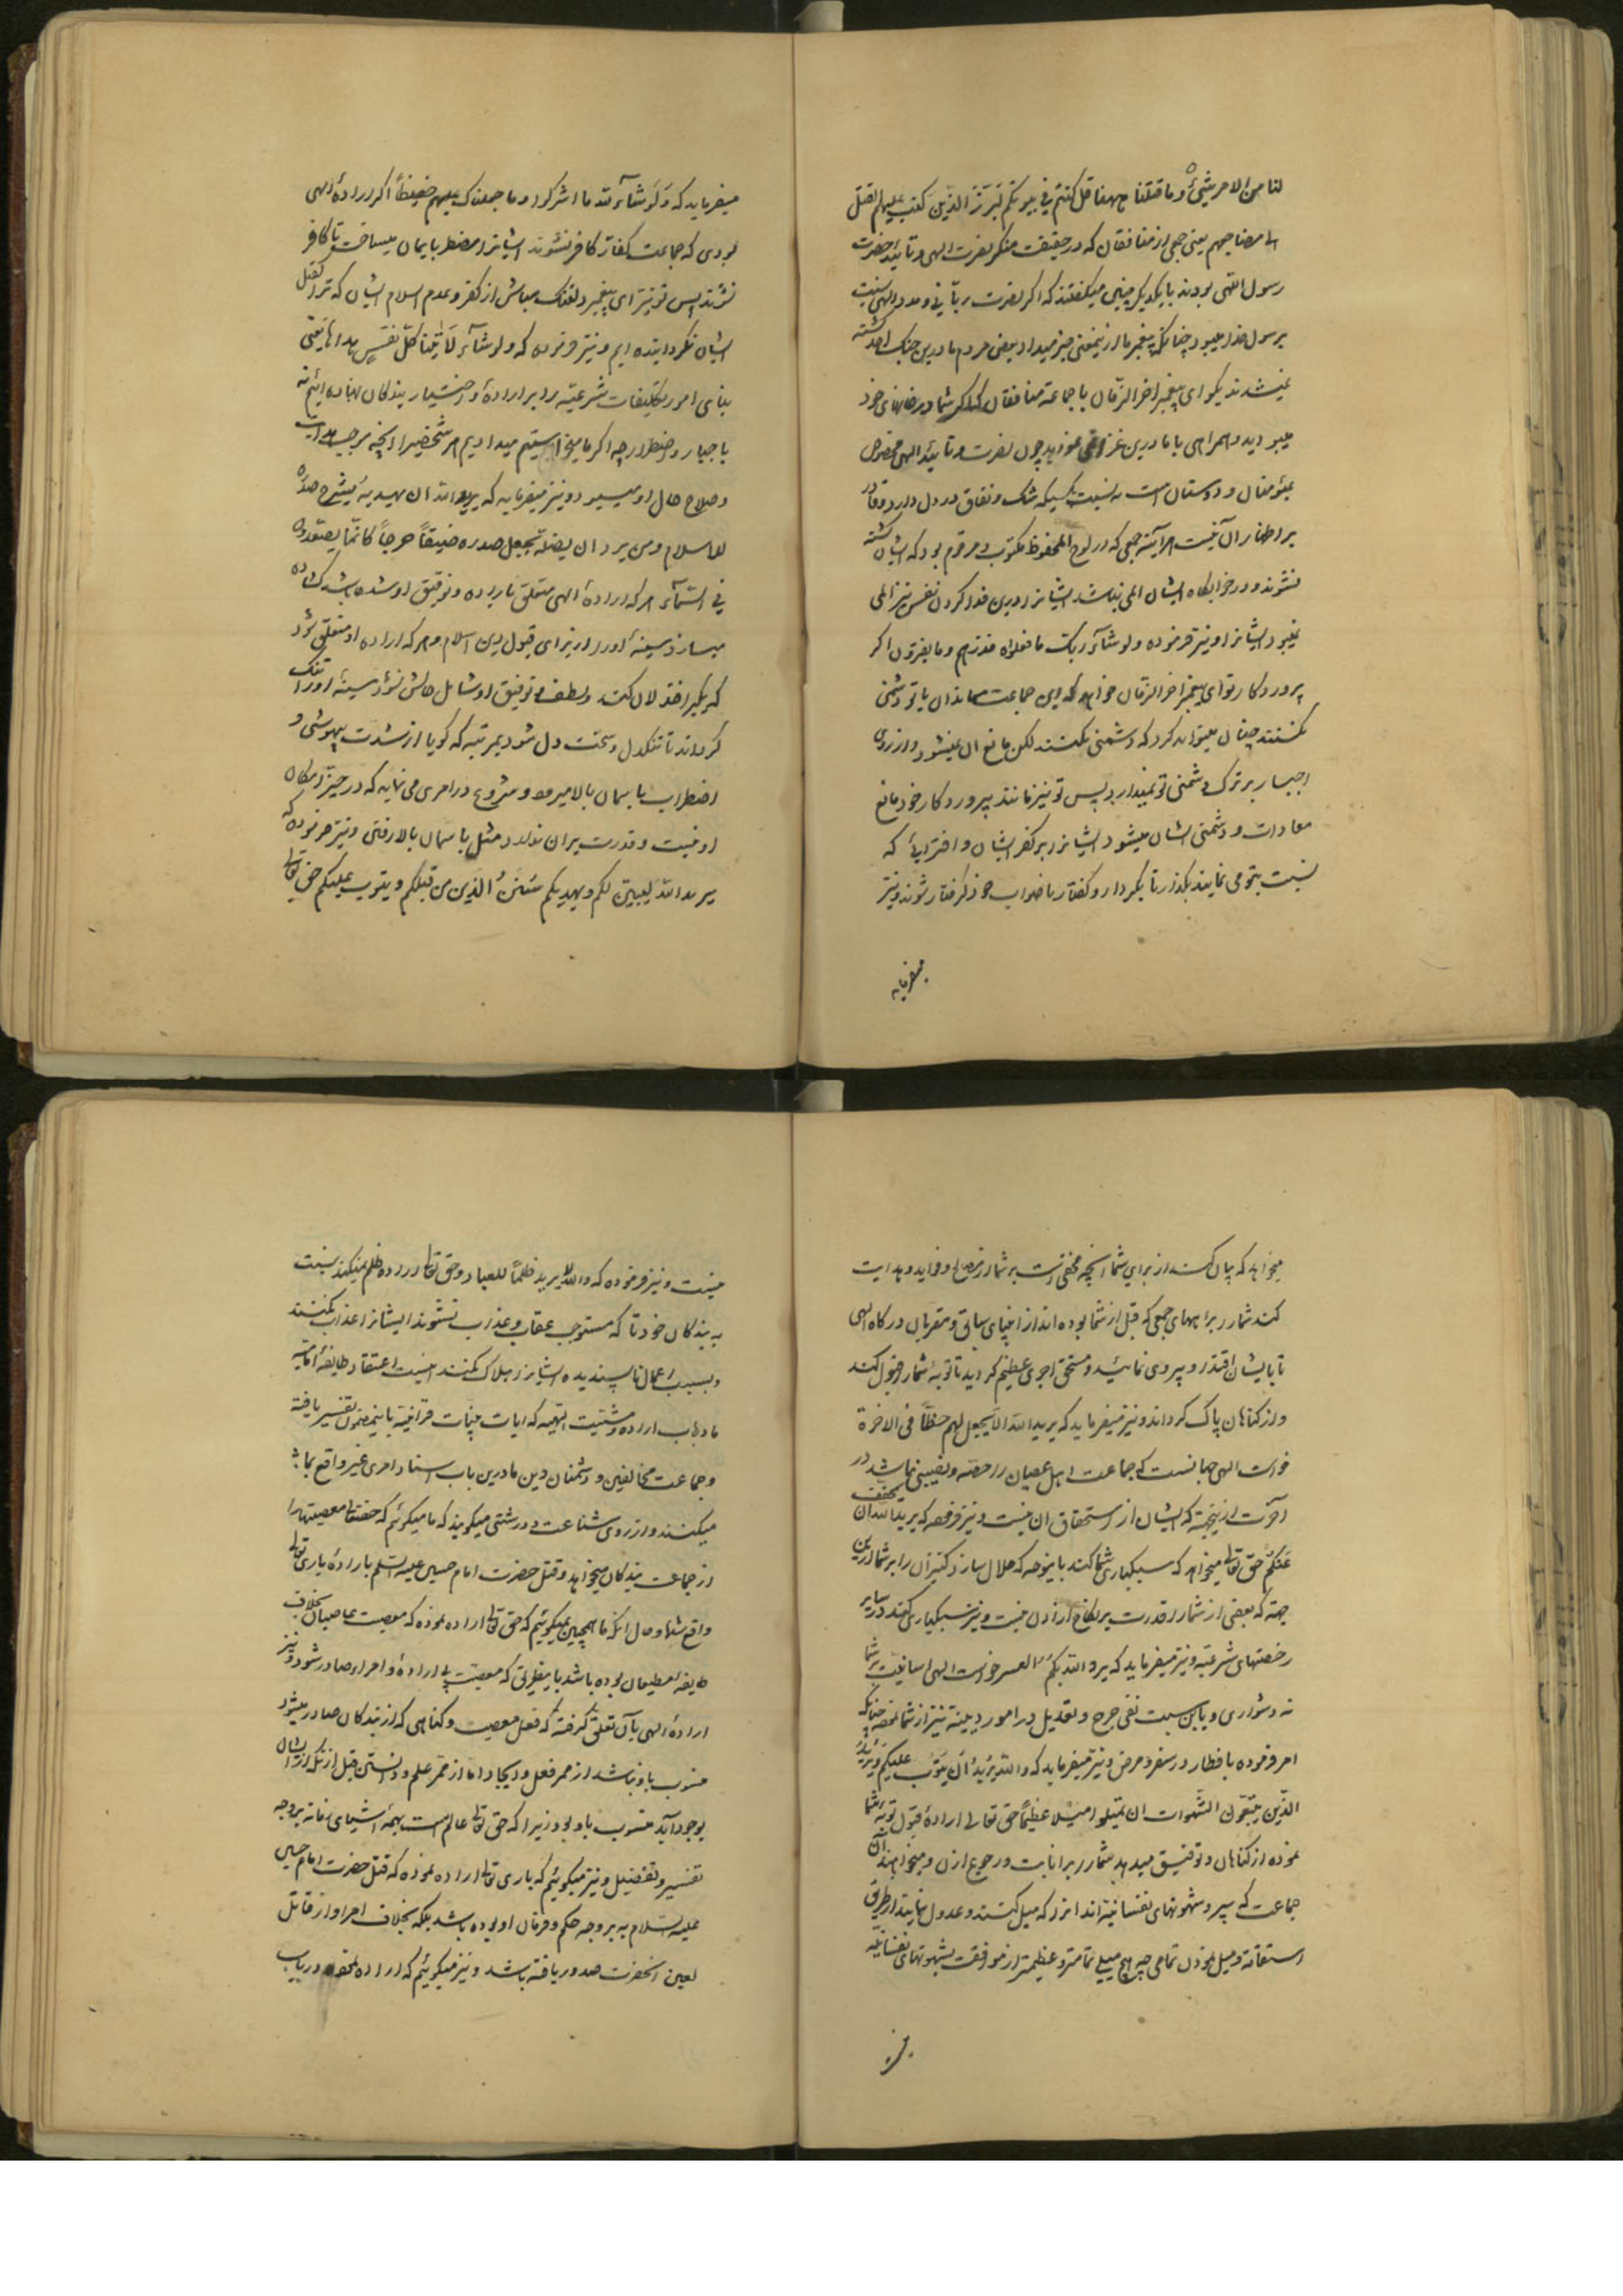 لنا من الامر شیئ وما قتلنا ههنا قل لو کنتم فی بیوتکم لبرز الذین کتب علیهم القتل
الی مضاجعهم یعنی جمعی از منافقان که در حقیقت منکر نصرت الهی و تائید حضرت
رسول اللهی بودند با یکدیکر چنین میکفتند که اکر نصرت ربانی و مدد الهی نسبت
برسول خدا میبود چنانکه پیغمبر ما از اینمعنی خبر میداد یعنی مردم ما درین جنک کشته
نمیشدند بکو ای پیغمبر اخر الزمان با جماعه منافقان که اکر شما در خانهای خود
میبودید و همراهی با ما درین غزوه نمی نمودید چون نصرت و تائید الهی مخصوص
بمؤمنان و دوستان است نه نسبت بکسیکه شک و نفاق در دل دارد و قادر
بر اظهار آن نیست هر آینه جمعی که در لوح المحفوظ مکتوب و مرقوم بود که ایشان کشته
نشوند و در خوابکاه ایشان المی نباشد ایشانرا درین فدا کردن نفس نیز المی
نمیبود ایشانرا و نیز فرموده ولو شاء ربک ما فعلوه فذرهم وما یفترون اکر
پروردکار تو ای پیغمبر اخر الزمان خواهد که این جماعت معاندان با تو دشمنی
نکنند چنان میتواند کرد که دشمنی نکنند لکن مانع ان نمیشود و از روی
اجبار بر ترک دشمنی تو نمیدارد پس تو نیز مانند پروردکار خود مانع
معادات و دشمنی ایشان میشو و ایشانرا بر کفر ایشان و افترایی که
نسبت بتو می نمایند بکذار تا بکردار و کفتار ناصواب خود کرفتار شوند و نیز
میفرماید
میفرماید که ولو شاء الله ما اشرکوا وما جعلناک علیهم حفیظا اکر اراده الهی
بودی که جماعت کفار کافر نشوند ایشانرا مضطر بایمان میساخت تا کافر
نشوند پس تو نیز ای پیغمبر دلتنک مباش از کفر و عدم اسلام ایشان که ترا کفیل
ایشان نکردانیده ایم و نیز فرموده که ولو شاء لاتینا کل نفس هدایها یعنی
بنای امور تکلیفات شرعیه را بر اراده و اختیار بندکان نهاده ایم نه
باجبار و اضطرار چه اکر ما میخواستیم میدادیم هر شخصیرا انچه موجب هدایت
و صلاح حال او میبود و نیز میفرماید که یرد الله ان یهدیه یشرح صدره
للاسلام ومن یرد ان یضله یجعل صدره ضیقا حرجا کانما یصعد
فی السماء هر که اراده الهی متعلق باراده و توفیق او شده باشد کشاده
میسازد سینه او را از برای قبول دین اسلام و هر که اراده او متعلق شود
که یکبار خذلان کند و لطف و توفیق او شامل حالش نشود سینه او را تنک
کرداند تا تنکدل و سخت دل شود بمرتبه که کویا از شدت بیهوشی و
اضطراب باسمان بالا میرود و شروع در امری می نماید که در حیز امکان
او نیست و قدرت بران ندارد مثل باسمان بالا رفتن و نیز فرموده که
یرید الله لیبین لکم ویهدیکم سنن الذین من قبلکم ویتوب علیکم حق تعالی
میخواهد که بیان کند از برای شما انچه مخفی است بر شما از مصالح و فواید و هدایت
کند شما را براههای جمعی که قبل از شما بوده اند از انبیای سابق و مقربان درکاه الهی
تا بایشان اقتدا و پیروی نمائید و مستحق اجری عظیم کردید تا توبه شما را قبول کند
و از کناهان پاک کرداند و نیز میفرماید که یرید الله الا یجعل لهم حظا فی الاخرة
خواست الهی چنانست که جماعت اهل عصیان را حصه و نصیبی نباشد در
آخرت از اینجهة که ایشان را استحقاق ان نیست و نیز فرموده که یرید الله ان یخفف
عنکم حق تعالی میخواهد که سبکباری شما کند باینوجه که حلال سازد کنیزان را بر شما ازین
جهة که بعضی از شما را قدرت بر نکاح ازادان نیست و نیز سبکباری کند در سایر
رخصتهای شرعیه و نیز میفرماید که یرید الله بکم العسر خواست الهی اسانیست بر شما
نه دشواری و باین سبب نفی حرج و تعدیل در امور دینیه نیز از شما نموده چنانکه
امر فرموده بافطار در سفر و مرض و نیز میفرماید که والله یرید ان یتوب علیکم ویرید
الذین یتبعون الشهوات ان تمیلوا میلا عظیما حق تعالی اراده قبول توبه شما
نموده از کناهان و توفیق میدهد شما را بر انابت و رجوع ازان و میخواهند آن
جماعت که پیرو شهوتهای نفسانیه اند انرا که میل کنند و عدول نمایند از طریق
استقامة و میل نمودن تمامی چه هیچ میلی تمامتر و عظیمتر از موافقت بشهوتهای نفسانیه
نیست
نیست و نیز فرموده که وما الله یرید ظلما للعباد و حق تعالی اراده ظلم نمیکند نسبت
به بندکان خود تا که مستوجب عقاب و عذاب نشوند ایشانرا عذاب نکنند
و بسبب اعمال ناپسندیده ایشانرا هلاک نکنند اینست اعتقاد طایفه امامیه
ما در باب اراده و مشیت الهیه که ایات بینات قرانیه باینمضمون تفسیر یافته
و جماعت مخالفین و دشمنان دین ما درین باب اسناد امری غیر واقع بما
میکنند و از روی شناعت و درشتی میکویند که ما میکوئیم که حقتعالی معصیتها را
از جماعت بندکان میخواهد و قتل حضرت امام حسین علیه السلم باراده باری تعالی
واقع شده و حال انکه ما همچنین نمیکوئیم که حق تعالی اراده نموده که معصیت عاصیان بخلاف
طایفه مطیعان بوده باشد باینطریق که معصیت بی اراده و امر او صادر شود و نیز
اراده الهی بآن تعلق کرفته که فعل معصیت و کناهی که از بندکان صادر میشود
منسوب باو نباشد از ممر فعل و ایجاد اما از ممر علم و دانستن قبل از انکه از ایشان
بوجود آید منسوب باو بود زیرا که حق تعالی عالم است بهمه اشیای زمانه بر وجه
تفسیر و تفصیل و نیز میکوئیم که باری تعالی اراده نموده که قتل حضرت امام حسین
علیه السلام نه بر وجه حکم و فرمان او بوده باشد بلکه بخلاف امر او از قاتل
لعین انحضرت صدور یافته باشد و نیز میکوئیم که اراده نموده در باب